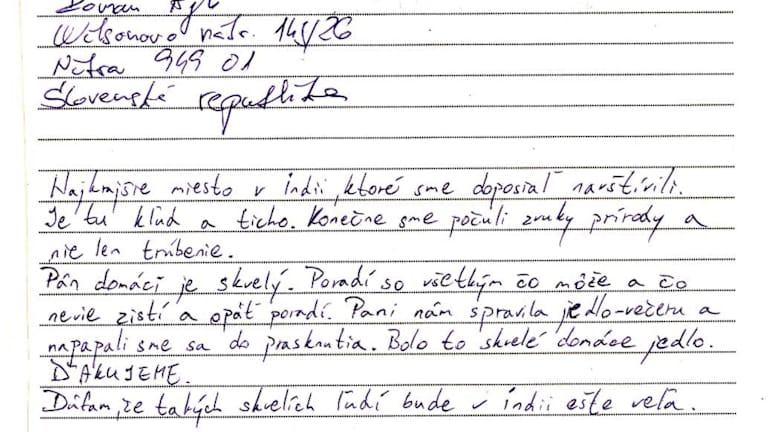 Wilsonovo nábr. 145/26
Nitra 949 01
Slovenská republika
Najkrajšie miesto v indii, ktoré sme doposiaľ navštívili.
Je tu kľud a ticho. Konečne sme počuli zvuky prírody a
nie len trúbenie.
Pán domáci je skvelý. Poradí so všetkým čo môže a čo
nevie zistí a opäť poradí. Pani nám spravila jedlo-večeru a
napapali sme sa do prasknutia. Bolo to skvelé domáce jedlo.
ĎAKUJEME.
Dúfam, že takých skvelích ľudí bude v indii ešte veľa.